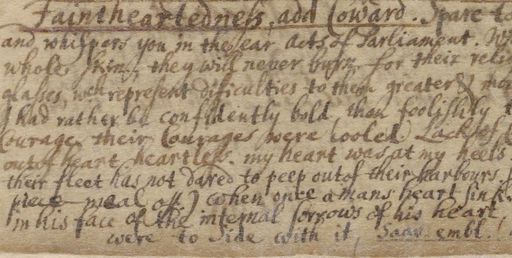 Faintheartedness, add Coward. Spare to
and whispers you in the ear acts of Parliament. W
whole skins, they will never burn for their reli
glasses, wch represent difficulties to them greater & mor
I had rather be confidently bold, than foolishly t
Courage. their Courages were cooled. Lack of
out of heart, heartless. my heart was at my heels.
their fleet has not dared to peep out of their harbours.
piece-meal off) when once a mans heart sink
in his face of the internal sorrows of his heart
were to side with it, Saav. embl.